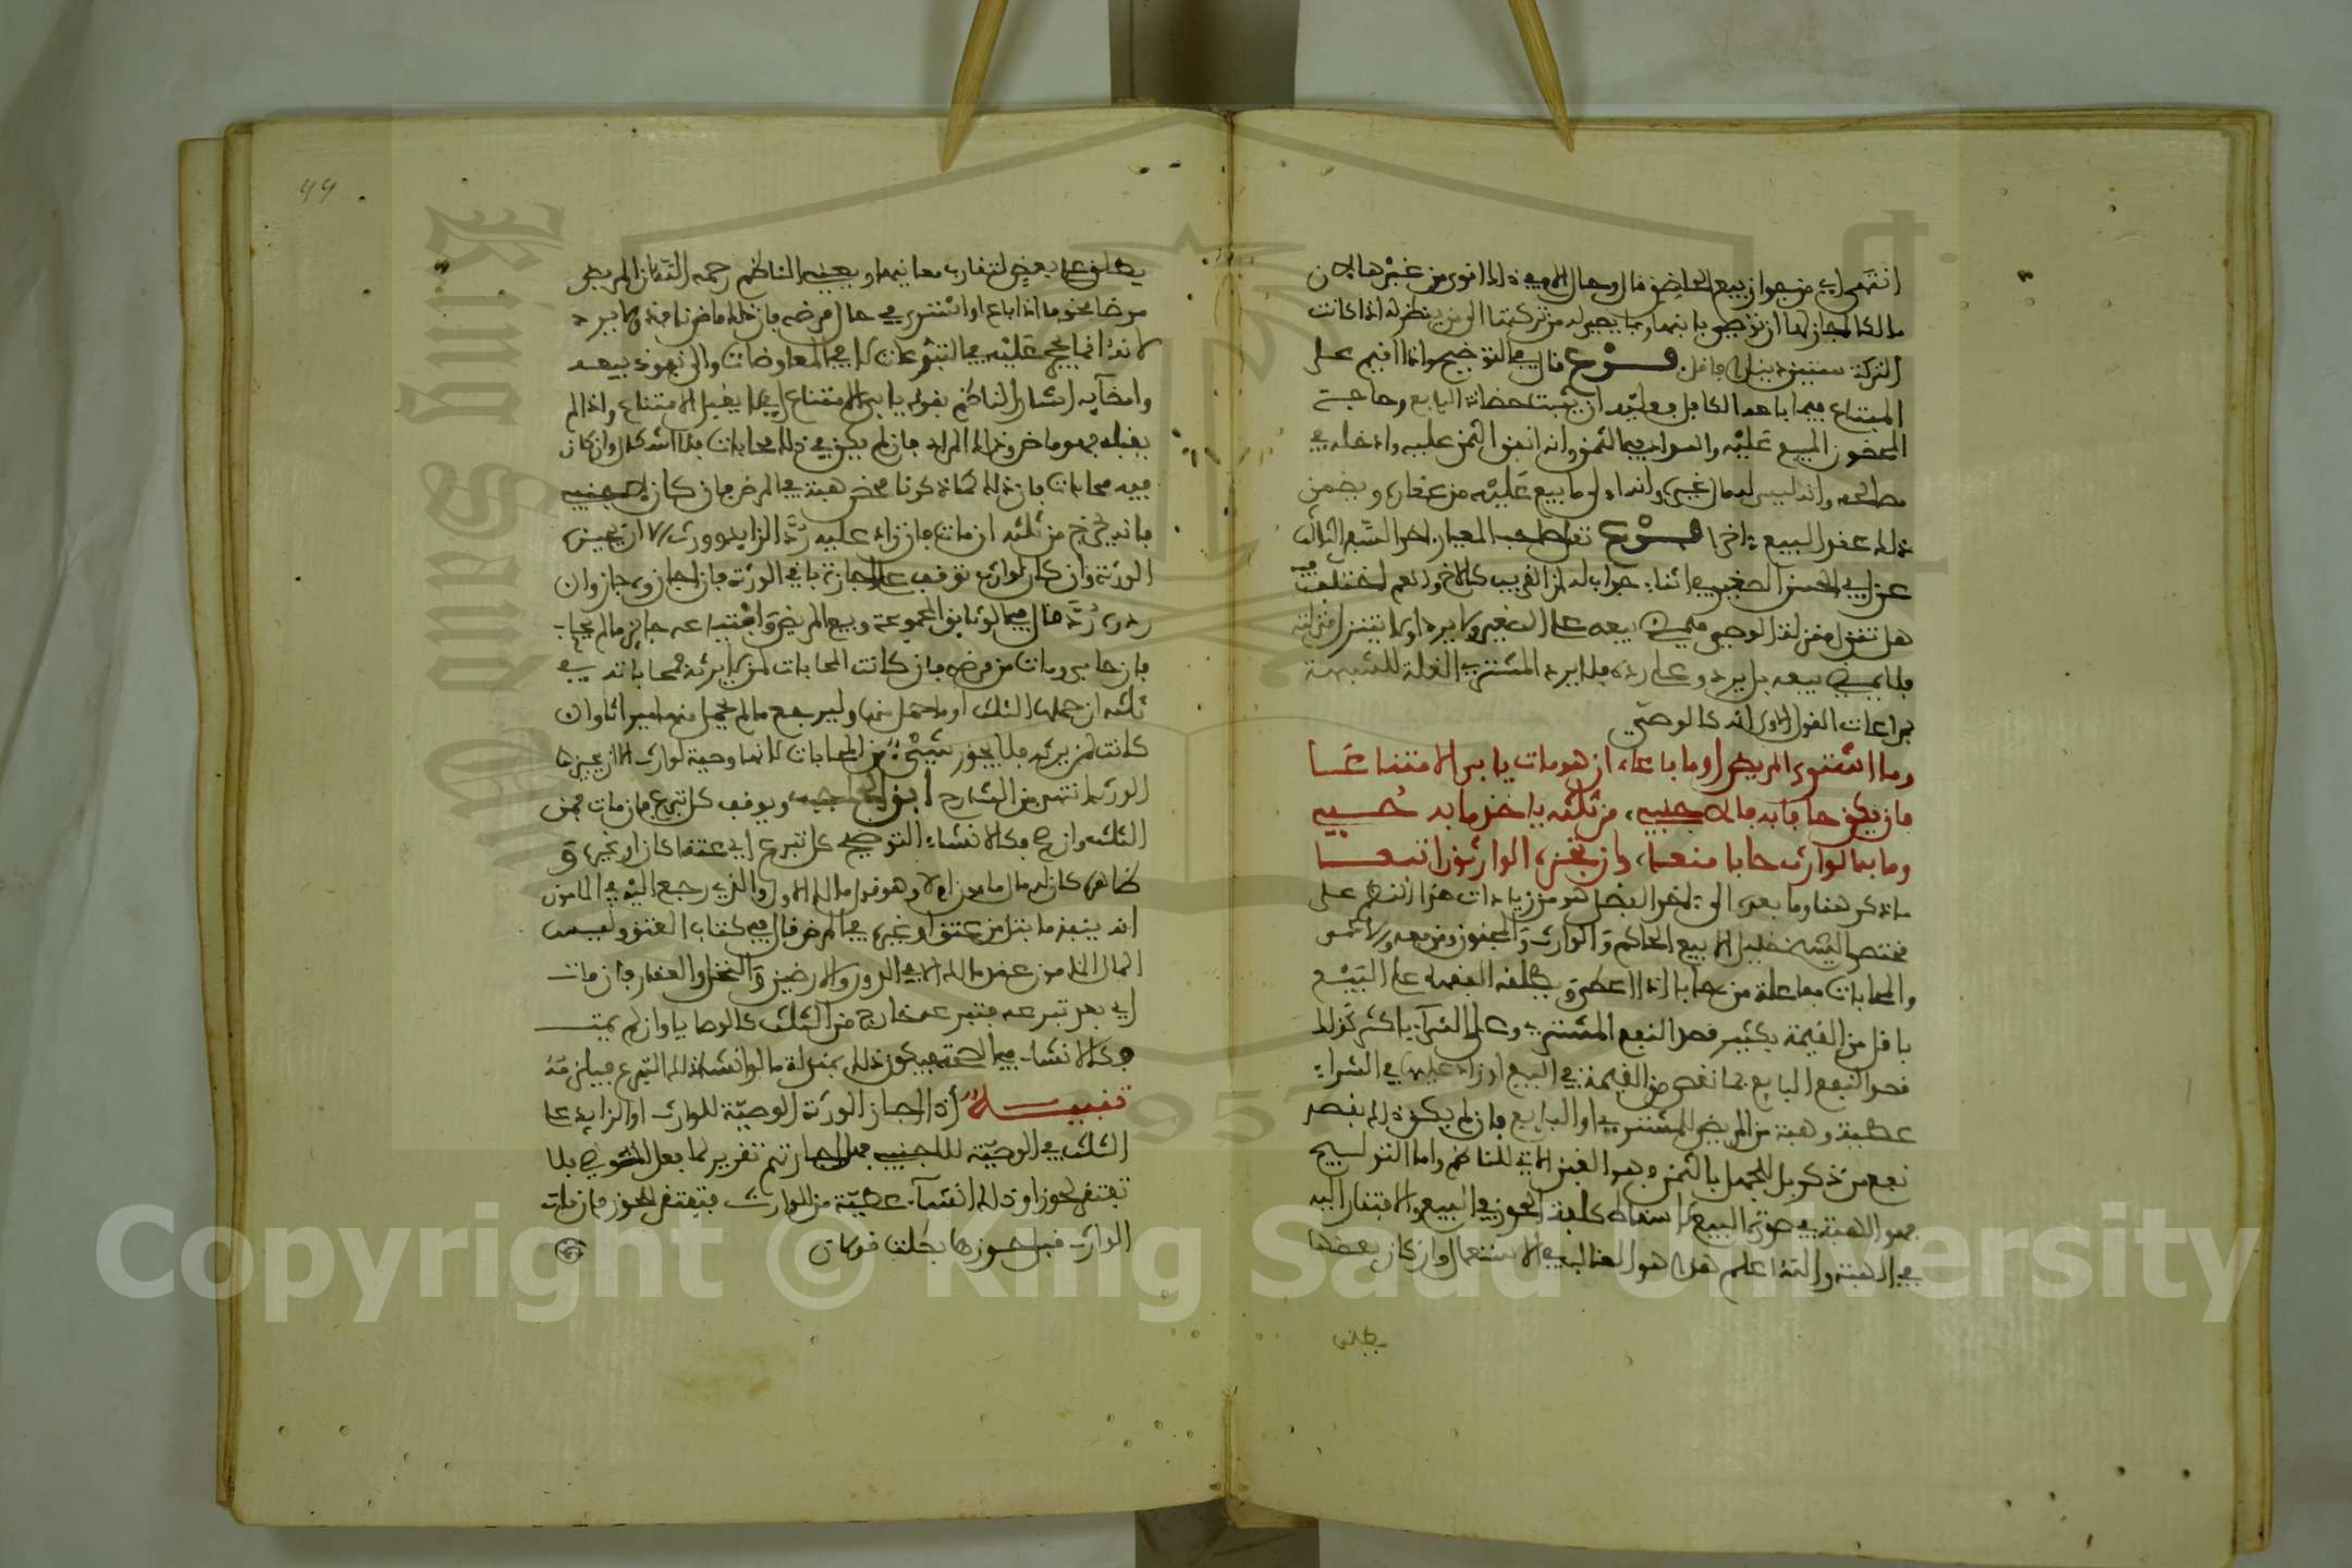 انتهى اي من جواز بيع الحاضن قال وحال الام في ذلك اقوى من غيرها لان
مالكا اجاز لها ان توصي بابنها وبما يصير له من تركتها الى من ينظر له اذا كانت
التركة ستين دينارا فاقل فرع قال في التوضيح واذا اقيم على
المبتاع فيما باعه الكافل فعليه ان يثبت حضانة البايع وحاجة
المحضون المبيع عليه والسداد في الثمن وانه انفق الثمن عليه وادخله في
مصالحه وانه ليس له مال غيره وانه اولى ما بيع عليه من عقاره ويضمن
ذلك عقد البيع فرع نقل صاحب المعيار
عن ابي الحسن الصغير في اثناء جواب له ان القريب كالاخ والعم اختلف فيه
هل تنزل منزلة الوصي فيمضي بيعه على الصغير ولا يرد اولا يتنزل منزلته
فلا يمضي بيعه بل يرد وعلى رده فلا يرد المشتري الغلة للشبهة
بمراعات القول الاول انه كالوصي
وما اشترى المريض او ما باعا ان هو مات يابى الامتناعا
فان يكن حابى به فالاجنبي من ثلثه ياخذ ما به حبي
وما به الوارث حابى منعا وان يجز الوارثون اتبعا
ما ذكر هنا وما بعده الى اخر الفصل هو من زيادات هذا النظم على
مختصر الشيخ خليل الا بيع الحاكم والوارث والمجنون ومن معه
والمحابات مفاعلة من حابا اذا اعطى ويطلقه الفقهاء على البيع
باقل من القيمة بكثير قصد النفع المشتري وعلى الشراء باكثر كذلك
قصد النفع البايع فما نقص من القيمة في البيع او زاد عليها في الشراء
عطية وهبة من المريض للمشتري او البايع فان لم يكن ذلك بقصد
نفع من ذكر بل للجهل بالثمن فهو الغبن الاتي للناظم واما التوليج
فهو الهبة في صورة البيع لاسقاط كلفة الحوز في البيع والافتقار اليه
في الهبة والله اعلم هذا هو الغالب في الاستعمال وان كان بعضها
يطلق
يطلق على بعض لتقارب معانيها ويعني الناظم رحمه الله ان المريض
مرضا مخوفا اذا باع او اشترى في حال مرضه فان ذلك ماض نافذ لا يرد
لانه انما يحجر عليه في التبرعات لا في المعاوضات والى نفوذ بيعه
وامضائه اشار الناظم بقوله يابى الامتناع اي لا يقبل الامتناع واذا لم
يقبله فهو ماض وذلك المراد فان لم يكن في ذلك محابات فلا اشكال وان كان
فيه محابات فان ذلك كما ذكرنا محض هبة في المرض فان كان لاجنبي
فانه يخرج من ثلثه ان مات فان زاد عليه رد الزايد وورث الا ان يجيزه
الورثة وان كان لوارث توقف على اجازة باقي الورثة فان اجازوه جاز وان
ردوه رد قال في الوثايق المجموعة وبيع المريض وابتياعه جايز ما لم يحاب
فان حابى ومات من مرضه فان كانت المحابات لمن لا يرثه فمحاباته في
ثلثه ان حملها الثلث او ما حمل منها وليرجع ما لم يحمل منها ميراثا وان
كانت لمن يرثه فلا يجوز شيء من المحابات لانها وصية لوارث الا ان يجيزها
الورثة انتهى من الشارح ابن الحاجب ويوقف كل تبرع فان مات فمن
الثلث وان صح فكالانشاء التوضيح كل تبرع اي عتقا كان او غيره و
ظاهره كان له مال مامون ام لا وهو قول مالك الاول والذي رجع اليه في المامون
انه ينفذ ما بتل من عتق او غيره في المرض قال في كتاب العتق وليس
المال المامون عند مالك الا في الدور والارضين والنخل والعقار فان مات
اي بعد تبرعه فتبرعه خارج من الثلث كالوصايا وان لم يمت
فكالانشاء في الصحة فيكون ذلك بمنزلة ما لو انشا ذلك التبرع فيلزمه
تنبيه اذا اجاز الورثة الوصية للوارث او الزايد على
الثلث في الوصية للاجنبي فهل اجازتهم تقرير لما فعل الموصي فلا
تفتقر لحوز او ذلك انشاء عطية من الوارث فتفتقر للحوز فان مات
الوارث قبل حوزها بطلت قولان